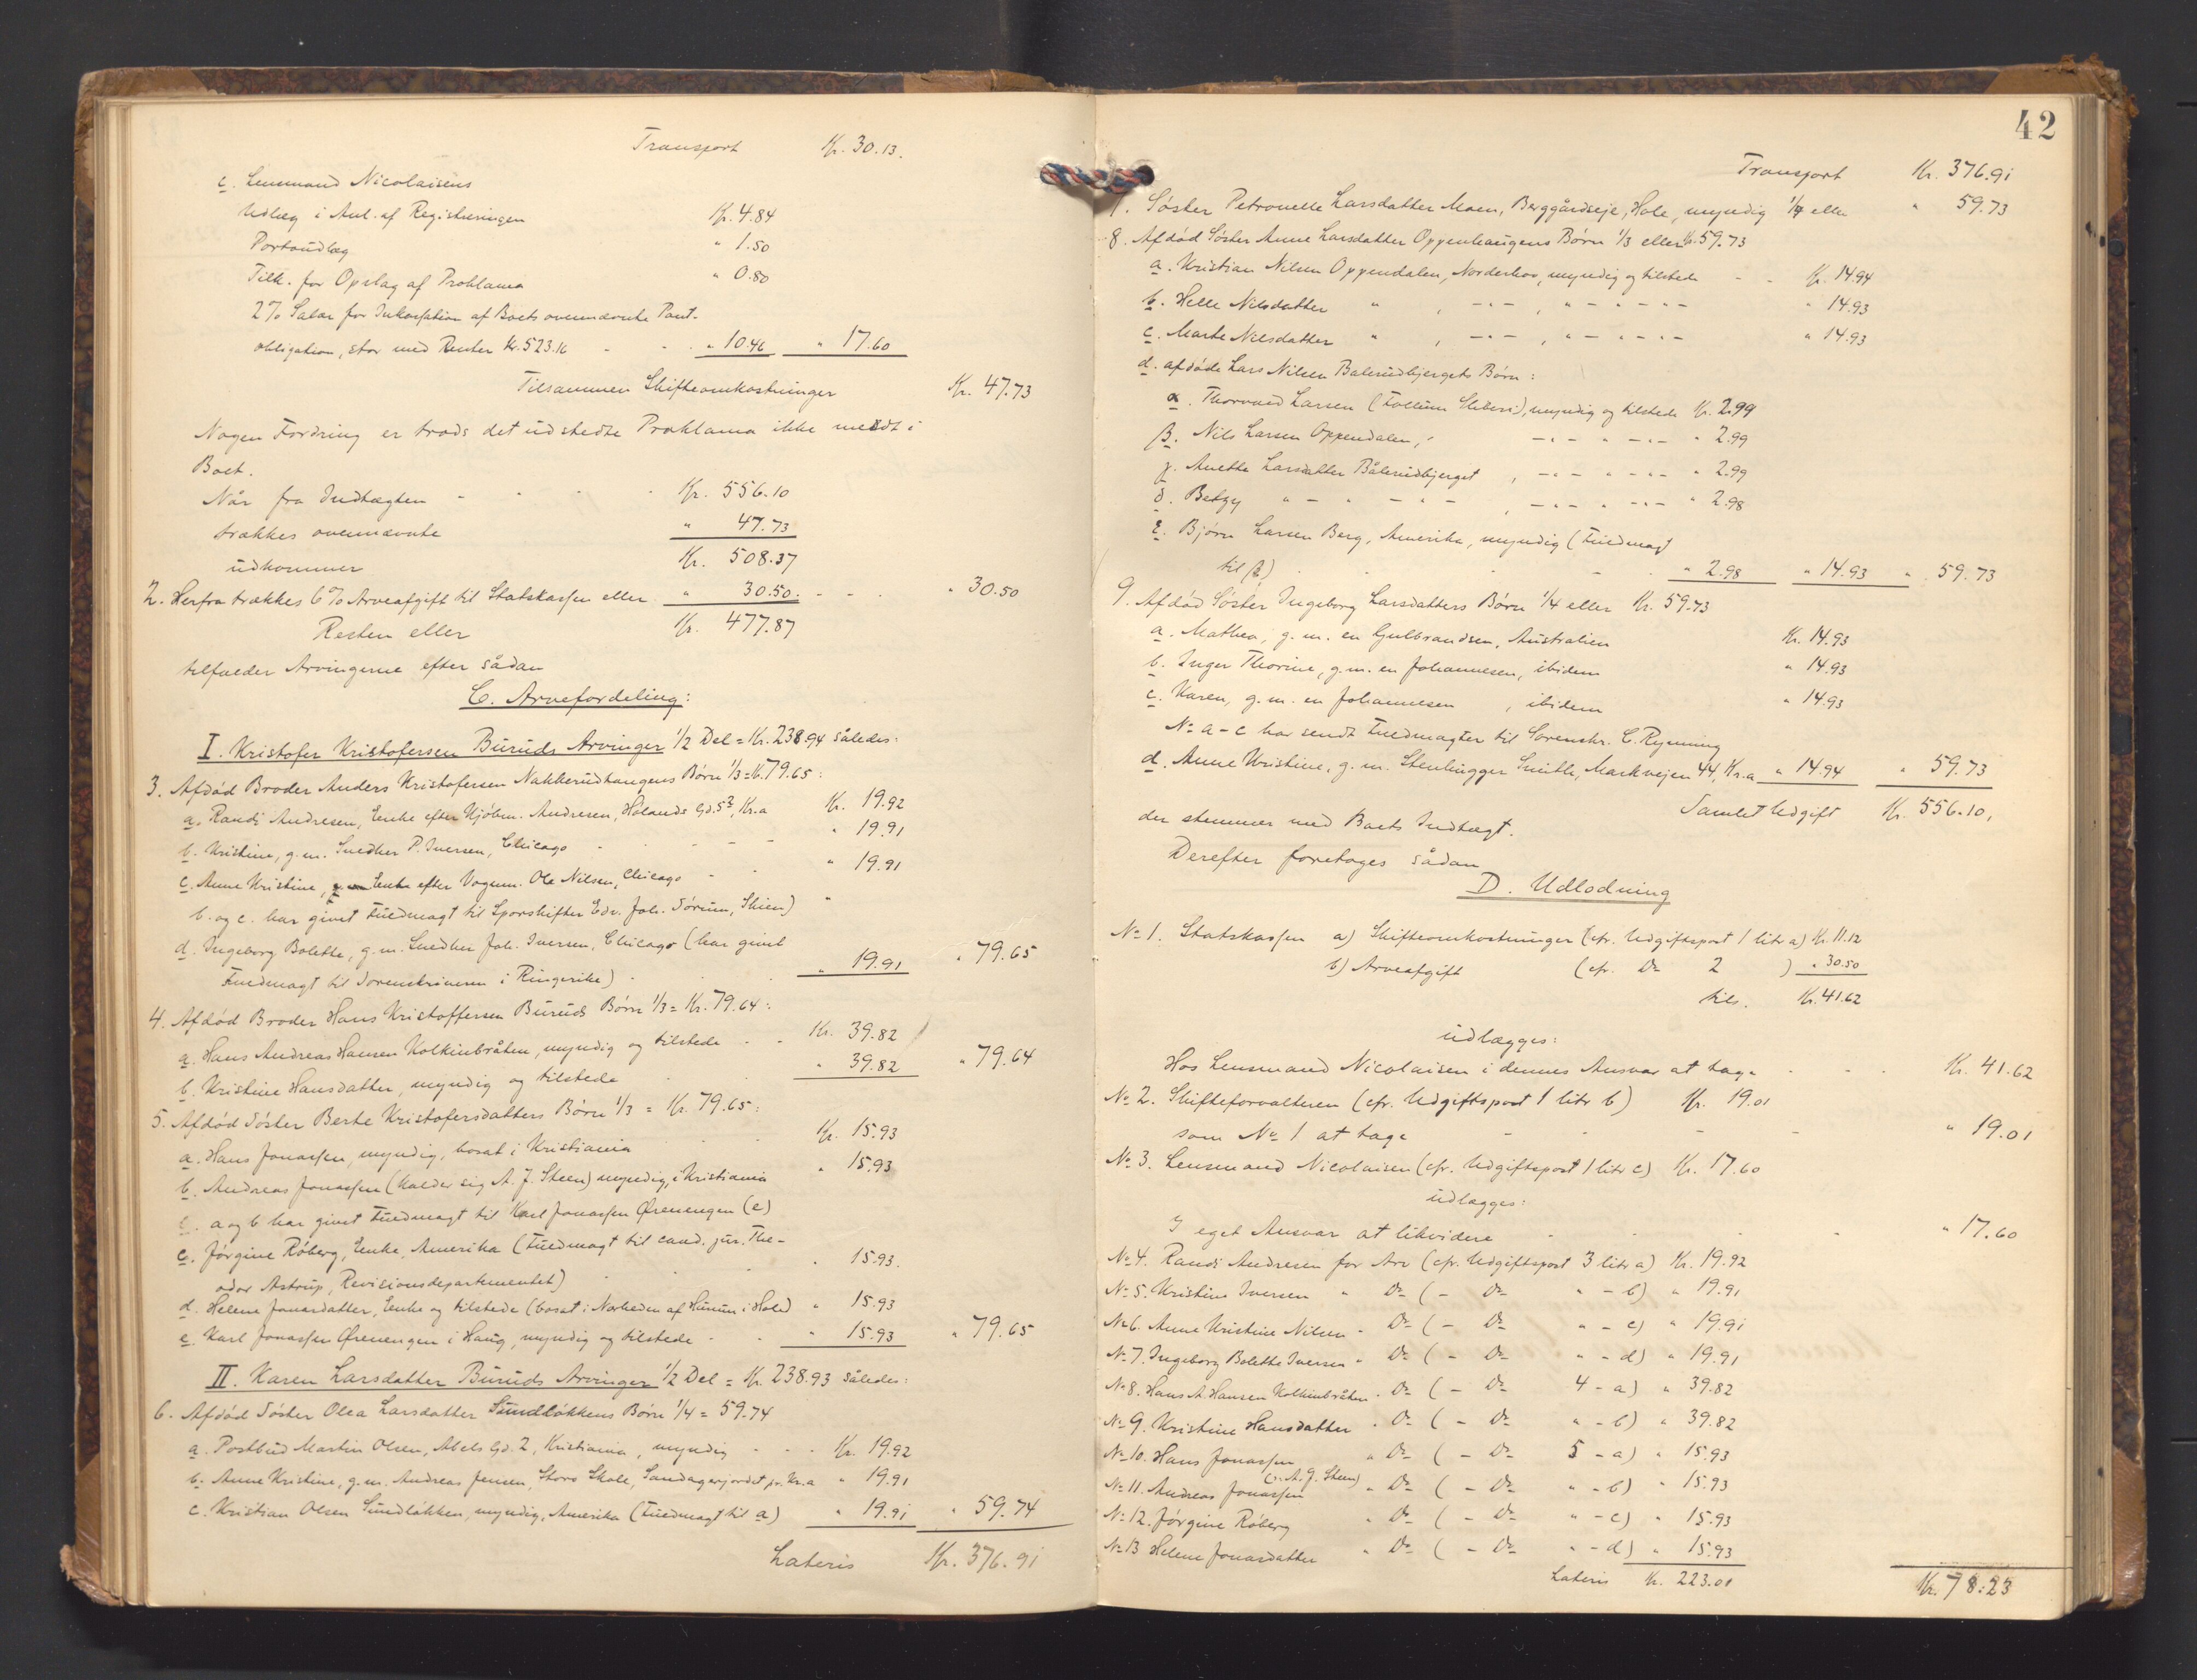 Transport Kr. 30.13.
c. Lensmand Nicolaisens
Udlæg i Anl. af Registreringen Kr. 4.84
Portoudlæg " 1.50
Tilk. for Opslag af Proklama " 0.80
2% Salær for Inkassation af Boets ovennævnte Pant-
obligation, stor med Renter Kr. 523.16 - - " 10.46 " 17.60
Tilsammen Skifteomkostninger Kr. 47.73
Nogen Fordring er trods det udstedte Proklama ikke meldt i
Boet.
Når fra Indtægten - - - Kr. 556.10
trækkes ovennævnte " 47.73
udkommer Kr. 508.37
2. Herfra trækkes 6% Arveafgift til Statskassen eller " 30.50. - - - " 30.50
Resten eller Kr. 477.87
tilfalder Arvingerne efter sådan
C. Arvefordeling:
I. Kristofer Kristofersen Buruds Arvinger 1/2 Del = Kr. 238.94 således:
3. Afdød Broder Anders Kristofersen Nakkerudhaugens Børn 1/3 = Kr. 79.65:
a. Randi Andresen, Enke efter Kjøbm. Andresen, Hølands Gd. 5?, Kr.a Kr. 19.92
b. Kristine, g.m. Snedker P. Iversen, Chicago - - - - " 19.91
c. Anne Kristine, Enke efter Vognm. Ole Nilsen, Chicago - - " 19.91
b. og c. har givet Fuldmagt til Sporskifter Edv. Joh. Sørum, Skien) "
d. Ingeborg Bolette, g.m. Snedker Joh. Iversen, Chicago (har givet
Fuldmagt til Sorenskriveren i Ringerike) - - - " 19.91 " 79.65
4. Afdød Broder Hans Kristoffersen Buruds Børn 1/3 = Kr. 79.64:
a. Hans Andreas Hansen Kolkinbråten, myndig og tilstede - - Kr. 39.82
b. Kristine Hansdatter, myndig og tilstede - - " 39.82 " 79.64
5. Afdød Søster Berte Kristofersdatters Børn 1/3 = Kr. 79.65:
a. Hans Jonassen, myndig, bosat i Kristiania - - Kr. 15.93
b. Andreas Jonassen (kalder sig A. J. Steen) myndig, i Kristiania " 15.93
a og b har givet Fuldmagt til Karl Jonassen Ørenengen (e)
c. Jørgine Røberg, Enke, Amerika (Fuldmagt til cand. jur. The-
odor Astrup, Revisionsdepartementet) - - - " 15.93.
d. Helene Jonasdatter, Enke og tilstede (bosat i Nærheden af Hurum i Hole) " 15.93
e. Karl Jonassen Ørenengen i Haug, myndig og tilstede - - " 15.93 " 79.65
II. Karen Larsdatter Buruds Arvinger 1/2 Del = Kr. 238.93 således:
6. Afdød Søster Olea Larsdatter Sundløkkens Børn 1/4 = 59.74
a. Postbud Martin Olsen, Abels Gd. 2, Kristiania, myndig - - - Kr. 19.92
b. Anne Kristine, g.m. Andreas Jensen, Storo Skole, Sandagerjordet pr. Kr.a " 19.91
c. Kristian Olsen Sundløkken, myndig, Amerika (Fuldmagt til a) " 19.91 " 59.74
Lateris Kr. 376.91
42
Transport Kr. 376.91
7. Søster Petronelle Larsdatter Moen, Berggårdseje, Hole, myndig 1/4 eller " 59.73
8. Afdød Søster Anne Larsdatter Oppenhaugens Børn 1/3 eller Kr. 59.73
a. Kristian Nilsen Oppendalen, Norderhov, myndig og tilstede - - Kr. 14.94
b. Helle Nilsdatter " , -"- , " - " - " - " 14.93
c. Marte Nilsdatter " , -"- , " - " - " - " 14.93
d. afdøde Lars Nilsen Bålerudbjergets Børn:
α. Thorvald Larsen (Follum Sliberi), myndig og tilstede Kr. 2.99
β. Nils Larsen Oppendalen, -"- " -"- " 2.99
γ. Anette Larsdatter Bålerudbjerget , -"- " -"- " 2.99
δ. Betzy " - " - " - , -"- " -"- " 2.98
ε. Bjørn Larsen Berg, Amerika, myndig (Fuldmagt
til β) - - - " 2.98 " 14.93 " 59.73
9. Afdød Søster Ingeborg Larsdatters Børn 1/4 eller Kr. 59.73
a. Mathea, g.m. en Gulbrandsen, Australien Kr. 14.93
b. Inger Thorine, g.m. en Johannesen, ibidem " 14.93
c. Karen, g.m. en Johannesen , ibidem " 14.93
No a-c har sendt Fuldmagter til Sorenskr. C. Rynning
d. Anne Kristine, g.m. Stenhugger Smith, Markvejen 44, Kr.a " 14.94 " 59.73
Samlet Udgift Kr. 556.10,
der stemmer med Boets Indtægt.
Derefter foretoges sådan
D. Udlodning
No 1. Statskassen a) Skifteomkostninger (cfr. Udgiftspost 1 litr a) Kr. 11.12
b) Arveafgift (cfr. Do 2 ) " 30.50
tils. Kr. 41.62
udlægges:
Hos Lensmand Nicolaisen i dennes Ansvar at tage - - - Kr. 41.62
No 2. Skifteforvalteren (cfr. Udgiftspost 1 litr b) Kr. 19.01
som No 1 at tage - - - - " 19.01
No 3. Lensmand Nicolaisen (cfr. Udgiftspost 1 litr c) Kr. 17.60
udlægges:
I eget Ansvar at likvidere - - - " 17.60
No 4. Randi Andresen for Arv (cfr. Udgiftspost 3 litr a) Kr. 19.92
No 5. Kristine Iversen " Do ( - Do " - b) " 19.91
No 6. Anne Kristine Nilsen " Do ( - Do " - c) " 19.91
No 7. Ingeborg Bolette Iversen " Do ( - Do " - d) " 19.91
No 8. Hans A. Hansen Kolkinbråten " Do ( - Do 4 - a) " 39.82
No 9. Kristine Hansdatter " Do ( - Do " - b) " 39.82
No 10. Hans Jonassen " Do ( - Do 5 - a) " 15.93
No 11. Andreas Jonassen (o: A. J. Steen) " Do ( - Do " - b) " 15.93
No 12. Jørgine Røberg " Do ( - Do " - c) " 15.93
No 13 Helene Jonasdatter " Do ( - Do " - d) " 15.93
Lateris Kr. 223.01 Kr. 78.23